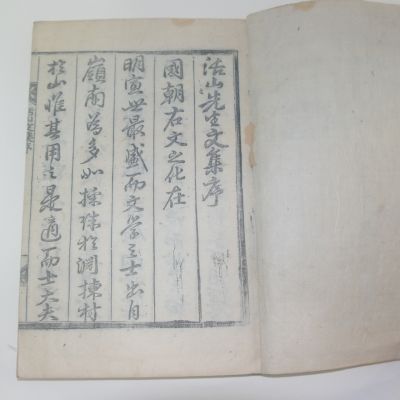 活山先生文集序
國朝右文之化在
明宣世最盛而文學之士出自
嶺南為多如採珠於淵揀材
於山惟其用之是適而士大夫